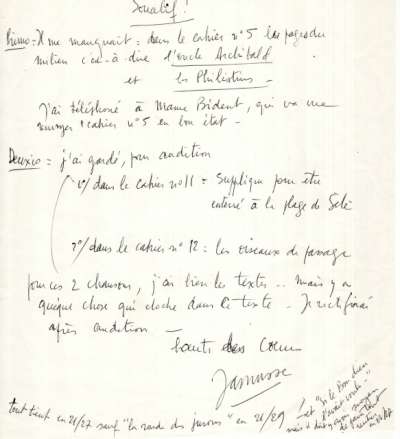 Primo = Il me manquait = dans le cahier n°5 les pages du
milieu c'est-à-dire l'oncle Archibald
et les Philistins -
J'ai téléphoné à Mame Bident, qui va me
envoyer 1 cahier n°5 en bon état -
Deuxio = j'ai gardé, pour audition
1°/ dans le cahier n°11 = Supplique pour être
enterré à la plage de Sète
2°/ dans le cahier n° 12 : les oiseaux de passage
pour ces 2 chansons, j'ai bien les textes .. mais y a
quelque chose qui cloche dans le texte - Je rectifierai
après audition -
hauts les Coeurs
tout tient en 21/27 sauf "la ronde des jurons" en 21/29
et "si le Bon dieu
l'avait voulu"